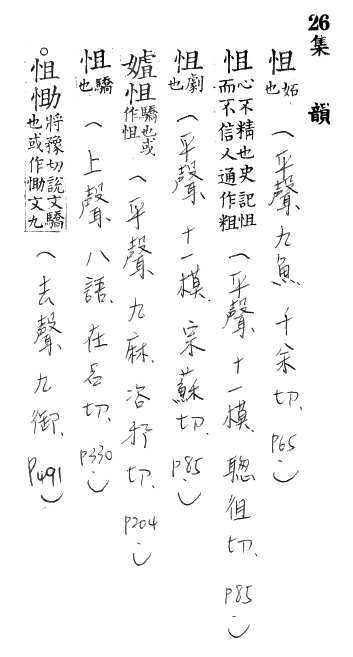 26集韻
怚妬也(平聲九魚 千余切、P65。)
怚心不精也史記怚而不信人通作粗(平聲十一模、聰徂切、P85。)
怚劇也(平聲十一模、宗蘇切、P85。)
㜘怚驕也或作怚(平聲九麻、咨邪切、P204。)
怚驕也(上聲八語、在呂切、P330。)
。怚㤖將豫切說文驕也或作㤖文九(去聲九御、P491。)